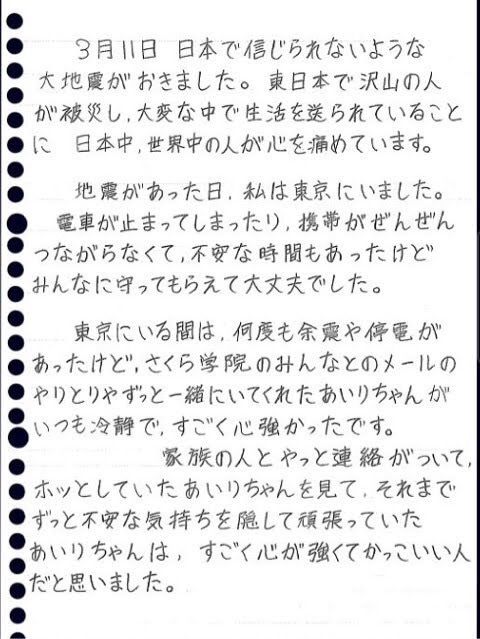 3月11日 日本で信じられないような
大地震がおきました。東日本で沢山の人
が被災し,大変な中で生活を送られていること
に 日本中,世界中の人が心を痛めています。
地震があった日,私は東京にいました。
電車が止まってしまったり,携帯がぜんぜん
つながらなくて,不安な時間もあったけど
みんなに守ってもらえて大丈夫でした。
東京にいる間は,何度も余震や停電が
あったけど,さくら学院のみんなとのメールの
やりとりやずっと一緒にいてくれたあいりちゃんが
いつも冷静で,すごく心強かったです。
家族の人とやっと連絡がついて,
ホッとしていたあいりちゃんを見て,それまで
ずっと不安な気持ちを隠して頑張っていた
あいりちゃんは,すごく心が強くてかっこいい人
だと思いました。